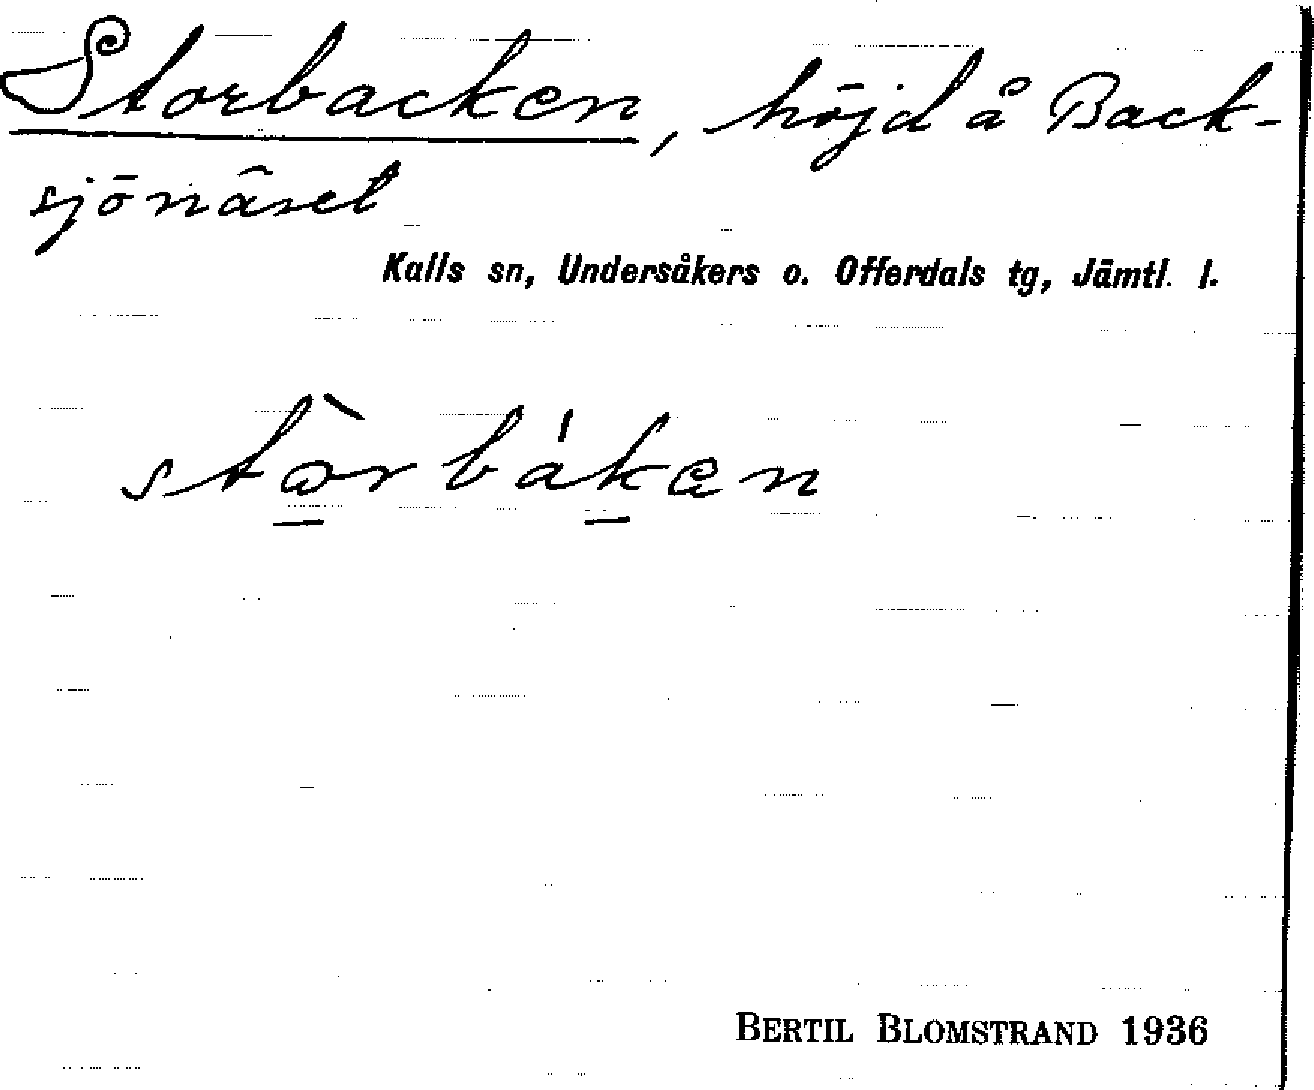 Storbacken, höjd å Back-
sjönäset
Kalls sn, Undersåkers o. Offerdals tg, Jämtl. l.
stòrbáken
BERTIL BLOMSTRAND 1936